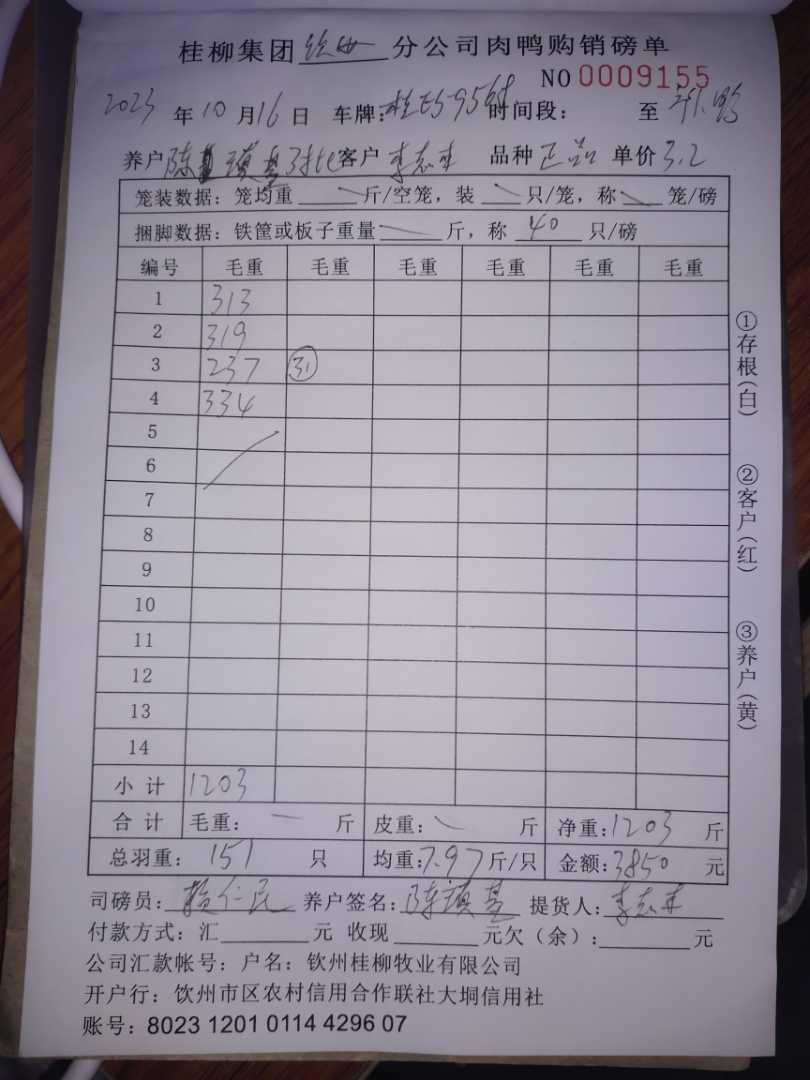 桂柳集团 钦州 分公司肉鸭购销磅单
NO 0009155
2023 年 10 月 16 日 车牌: 时间段: 至
养户 陈 客户 李志 品种 正品 单价 3.2
笼装数据: 笼均重 斤/空笼, 装 只/笼, 称 笼/磅
捆脚数据: 铁筐或板子重量 斤, 称 40 只/磅
编号 毛重 毛重 毛重 毛重 毛重 毛重
1 313
2 319
3 237 31
4 334
5
6
7
8
9
10
11
12
13
14
小计 1203
合计 毛重: 斤 皮重: 斤 净重: 1203 斤
总羽重: 151 只 均重: 7.97 斤/只 金额: 3850 元
司磅员: 仁民 养户签名: 陈 基 提货人: 李志
付款方式: 汇 元 收现 元欠(余): 元
公司汇款帐号: 户名: 钦州桂柳牧业有限公司
开户行: 饮州市区农村信用合作联社大垌信用社
账号: 8023 1201 0114 4296 07
①存根(白)
②客户(红)
③养户(黄)